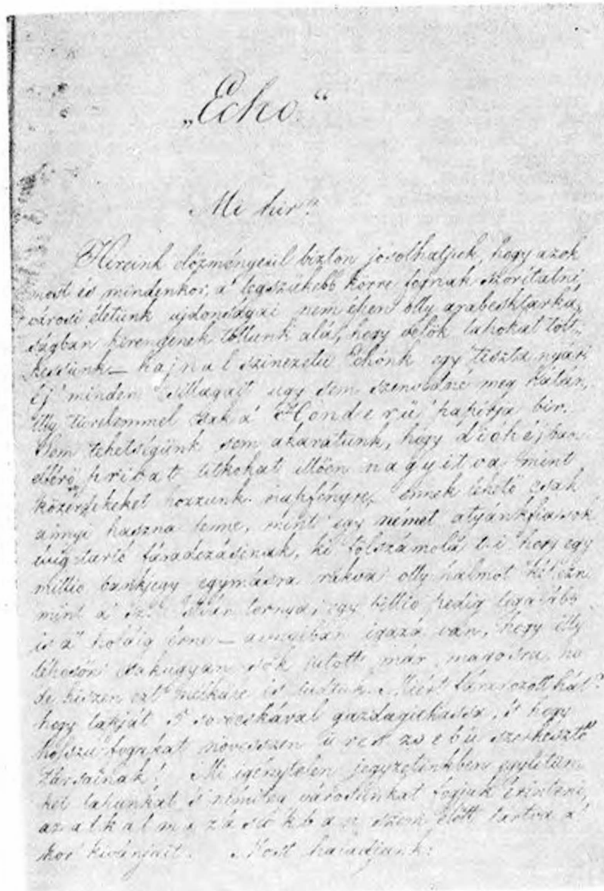 „Echo.“
Mi hir?
Hireink előzményeül bizton josolhatjuk, hogy azok
most és mindenkor a' legszűkebb körre fognak szorítatni,
városi életünk ujdonságai nem éken olly arabesktarka
ságban kerengenek tollunk alá, hogy azok lapokat tölt
hessünk – hajnal szinezetű Echónk egy tiszta nyári
éj minden csillagait ugy sem szenvedné meg hátán,
illy türelemmel csak a' Honderű papirja bir.
Sem tehetségünk sem akaratunk, hogy dióhéjban
elférő privat titkokat illően nagyitva mint
közérdekeket hozzunk napfényre, ennek csak
annyi haszna lenne, mint egy német atyánkfia sok
évig tartó fáradozásinak, ki fölszámolá t. i. hogy egy
millio bankjegy egymásra rakva olly halmot képezne
mint a' sz. tornya, egy billio pedig legalább
is a' holdig érne – annyiban igazá van, hogy illy
lépcsőn csakugyan sok jutott már magosra, no
de hiszen ezt is tudtuk. Miért fárazott hát?
hogy lapját 's gazdagithassa, 's hogy
hosszu fogakat növesszen üres zsebü szerkesztő
társainak! Mi igénytelen jegyzetinkben együtt
lapunkat 's némileg városunkat fogjuk érinteni,
az alkalmazásokban szem előtt tartva a'
kor kivánjait. Most haladjunk: